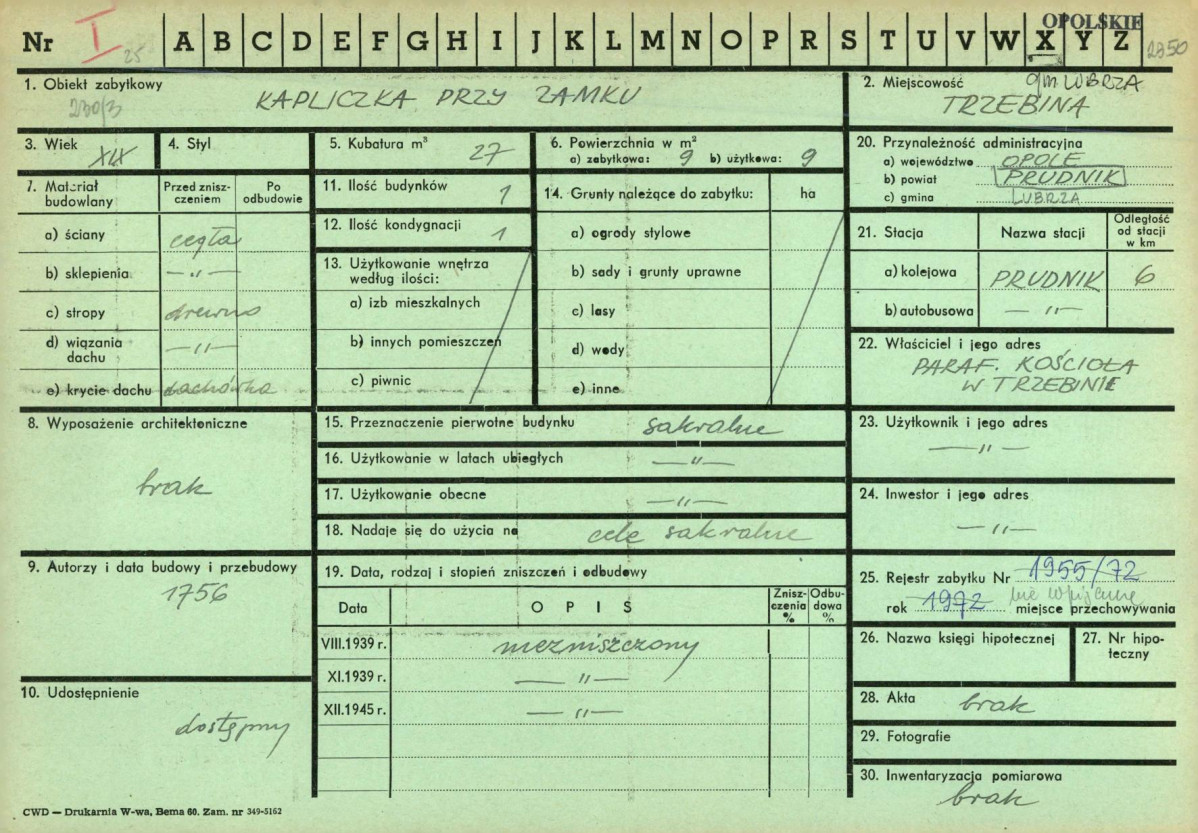 OPOLSKIE
Nr I 25 A B C D E F G H I J K L M N O P R S T U V W X Y Z 2350
1. Obiekt zabytkowy
230/3
KAPLICZKA PRZY ZAMKU
2. Miejscowość gm. LUBRZA
TRZEBINA
3. Wiek XIX
4. Styl
5. Kubatura m³ 27
6. Powierzchnia w m²
a) zabytkowa: 9 b) użytkowa: 9
20. Przynależność administracyjna
a) województwo OPOLE
b) powiat PRUDNIK
c) gmina LUBRZA
7. Materiał budowlany
Przed zniszczeniem
Po odbudowie
a) ściany cegła
b) sklepienia —„—
c) stropy drewno
d) wiązania dachu —„—
e) krycie dachu dachówka
11. Ilość budynków 1
12. Ilość kondygnacji 1
13. Użytkowanie wnętrza
według ilości:
a) izb mieszkalnych
b) innych pomieszczeń
c) piwnic
14. Grunty należące do zabytku: ha
a) ogrody stylowe
b) sady i grunty uprawne
c) lasy
d) wody
e) inne
21. Stacja
Nazwa stacji
Odległość
od stacji
w km
a) kolejowa PRUDNIK 6
b) autobusowa —„—
22. Właściciel i jego adres
PARAF. KOŚCIOŁA
W TRZEBINIE
8. Wyposażenie architektoniczne
brak
15. Przeznaczenie pierwotne budynku sakralne
16. Użytkowanie w latach ubiegłych —„—
17. Użytkowanie obecne —„—
18. Nadaje się do użycia na cele sakralne
23. Użytkownik i jego adres
—„—
24. Inwestor i jego adres
—„—
9. Autorzy i data budowy i przebudowy
1756
10. Udostępnienie
dostępny
19. Data, rodzaj i stopień zniszczeń i odbudowy
Data
OPIS
Zniszczenia %
Odbudowa %
VIII.1939 r. niezniszczony
XI.1939 r. —„—
XII.1945 r. —„—
25. Rejestr zabytku Nr 1955/72
rok 1972 miejsce przechowywania
26. Nazwa księgi hipotecznej
27. Nr hipoteczny
28. Akta brak
29. Fotografie
30. Inwentaryzacja pomiarowa
brak
CWD — Drukarnia W-wa, Bema 60. Zam. nr 349-5162